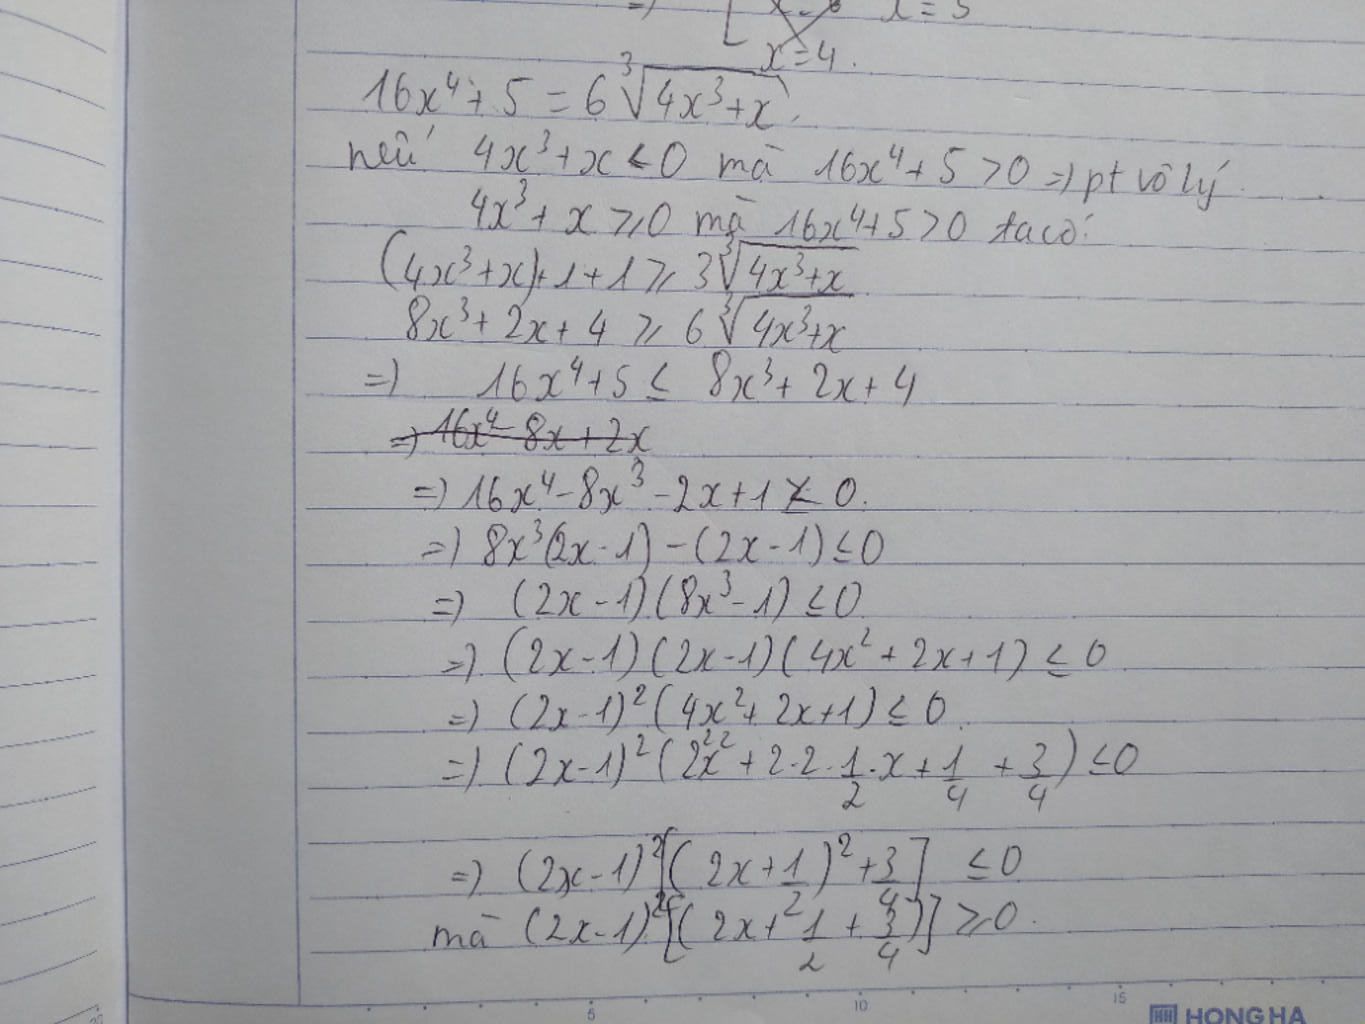 =) [ x = 3
x = 4.
16x⁴ + 5 = 6∛(4x³+x).
nếu 4x³ + x < 0 mà 16x⁴ + 5 > 0 =) pt vô lý.
4x³ + x ⩾ 0 mà 16x⁴+5 > 0 ta có:
(4x³+x)+1+1 ⩾ 3∛(4x³+x)
8x³+2x+4 ⩾ 6∛(4x³+x)
=) 16x⁴+5 ≤ 8x³+2x+4
=) 16x⁴ - 8x + 2x
=) 16x⁴-8x³-2x+1 ≤ 0.
=) 8x³(2x-1)-(2x-1) ≤ 0
=) (2x-1)(8x³-1) ≤ 0
=) (2x-1)(2x-1)(4x²+2x+1) ≤ 0
=) (2x-1)²(4x²+2x+1) ≤ 0.
=) (2x-1)²(2²x²+2·2·1/2·x+1/4+3/4) ≤ 0
=) (2x-1)²[(2x+1/2)²+3/4] ≤ 0
mà (2x-1)²[(2x+1/2)²+3/4)] ⩾ 0.
5 10 15
HONG HA